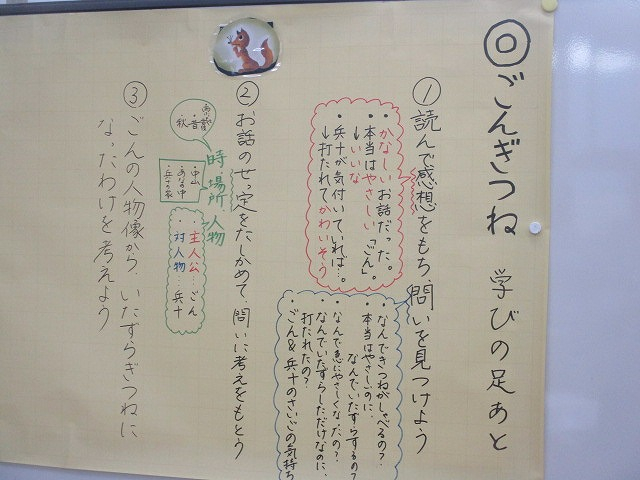 ◎ ごんぎつね 学びの足あと
① 読んで感想をもち、問いを見つけよう
・かなしいお話だった。
・本当はやさしい「ごん」。
↓いいな
・兵十が気付いていれば…。
↓打たれてかわいそう
・なんできつねがしゃべるの?
・本当はやさしいのに、
なんでいたずらするの?
・なんで急にやさしくなったの?
・なんでいたずらしただけなのに、
打たれたの?
・ごん&兵十のさいごの気持ち
② お話のせっ定をたしかめて、問いに考えをもとう
時・場所 人物
・昔
秋
・中山
・あなの中
・兵十の家
・主人公…ごん
・対人物…兵十
③ ごんの人物像から、いたずらぎつねに
なったわけを考えよう